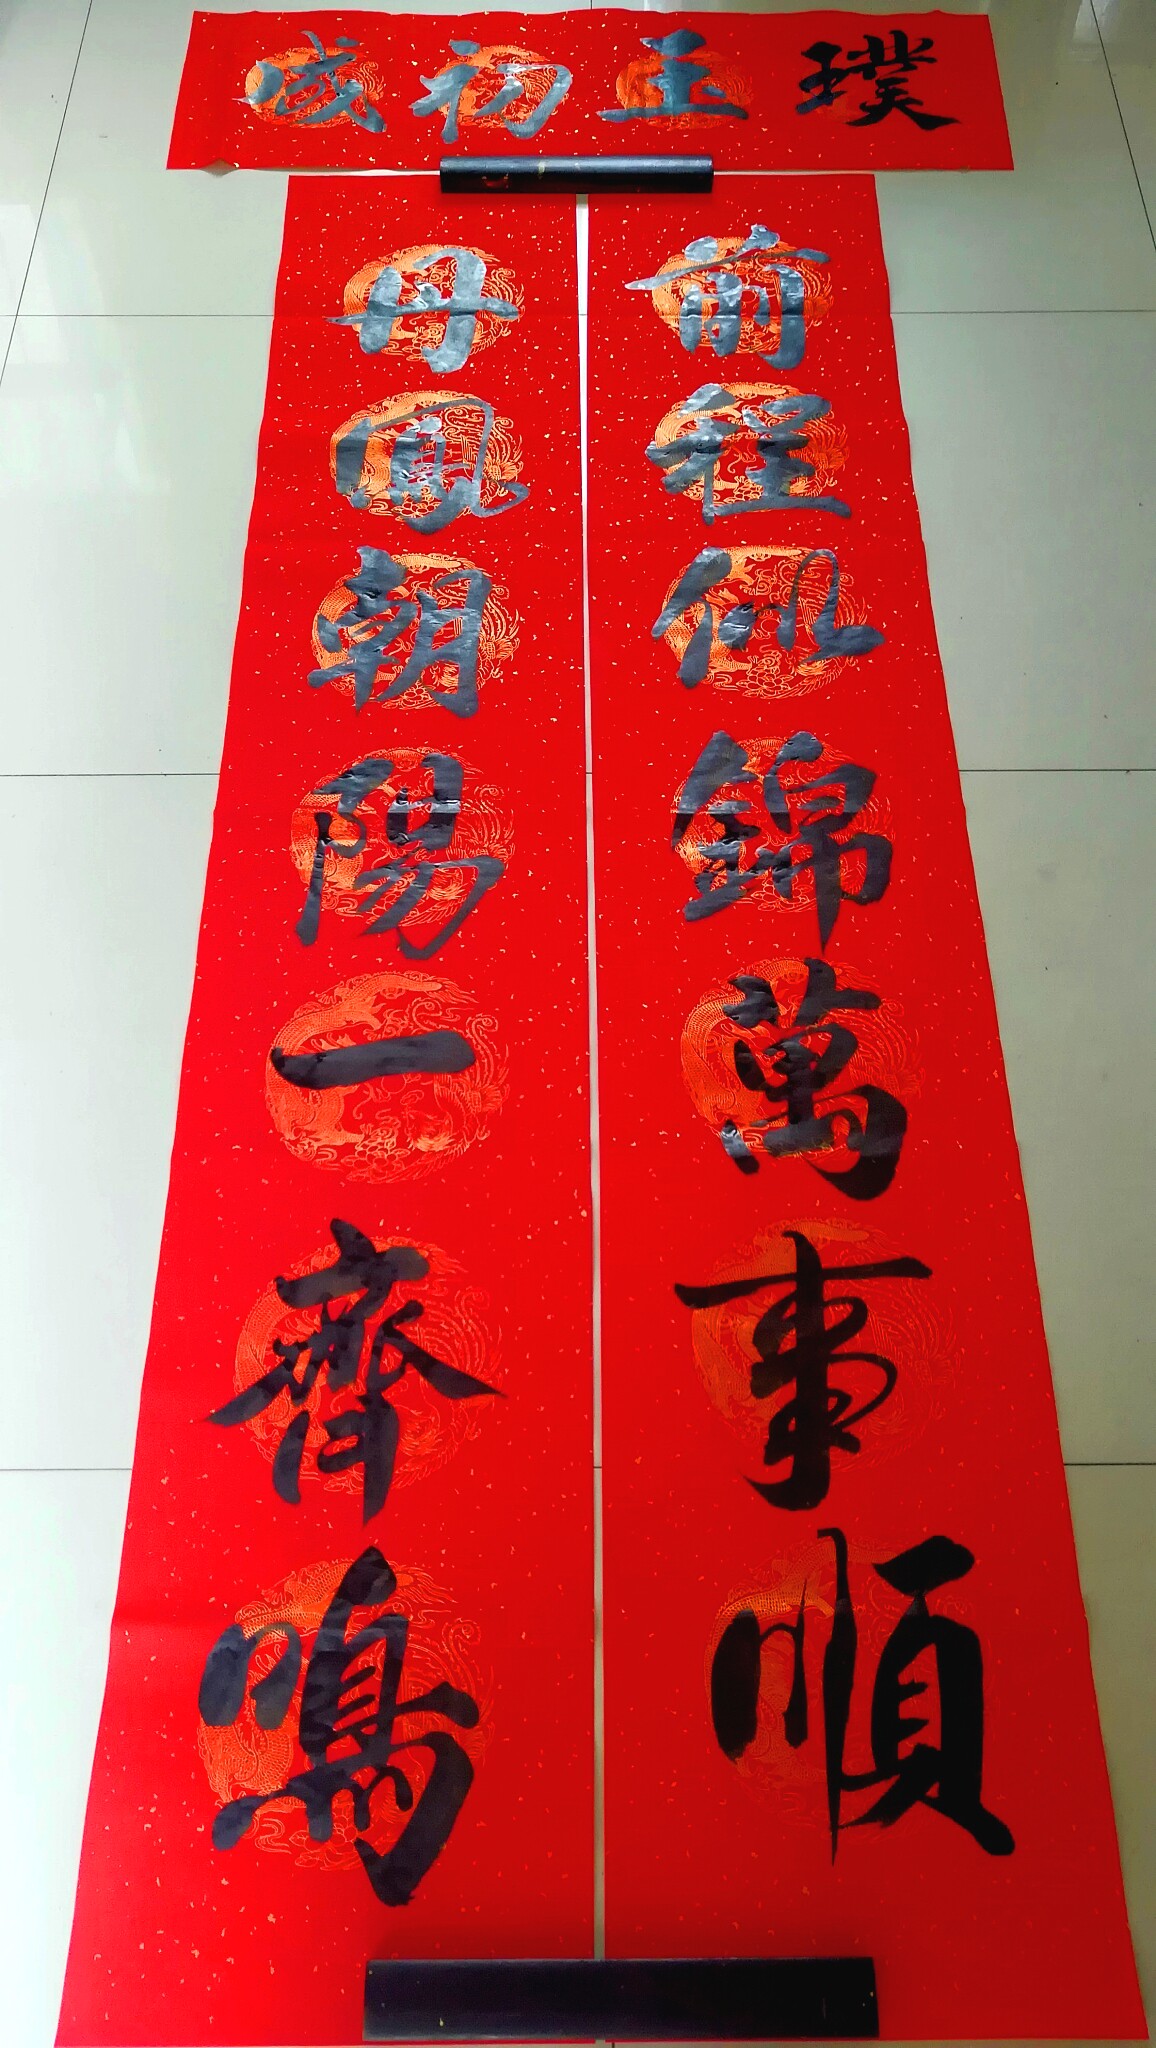 璞玉初成
前程似錦萬事順
丹鳳朝陽一齊鳴